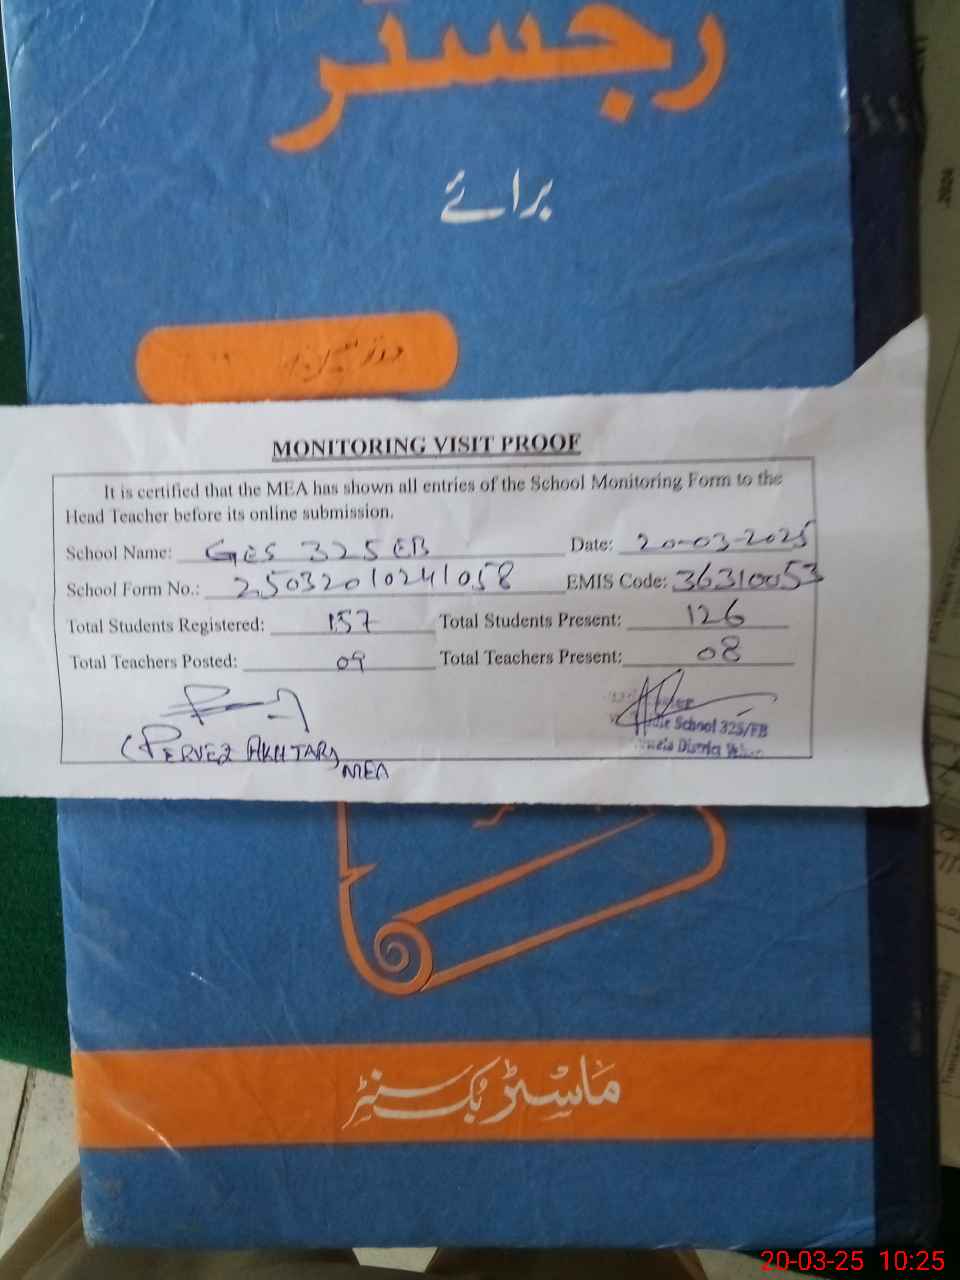 رجسٹر
برائے
MONITORING VISIT PROOF
It is certified that the MEA has shown all entries of the School Monitoring Form to the
Head Teacher before its online submission.
School Name: GES 325 EB Date: 20-03-2025
School Form No.: 25032010241058 EMIS Code: 36310053
Total Students Registered: 157 Total Students Present: 126
Total Teachers Posted: 09 Total Teachers Present: 08
School 325/EB
District
(PERVEZ AKHTAR)
MEA
ماسٹر بک سنٹر
20-03-25 10:25